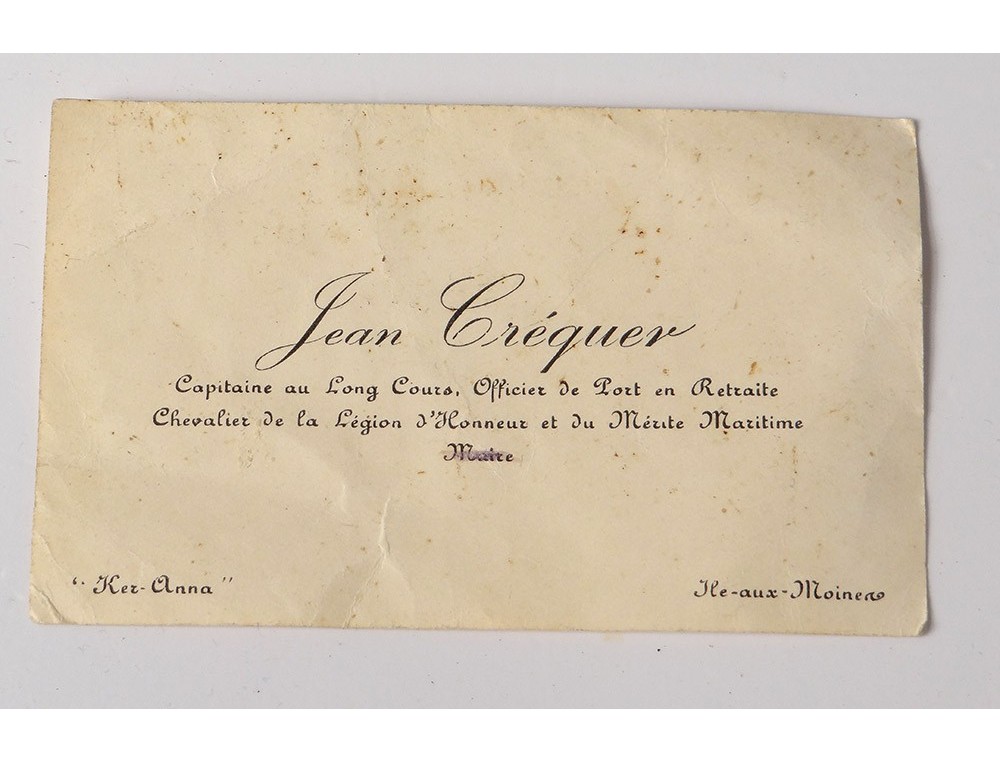 Jean Créquer
Capitaine au Long Cours, Officier de Port en Retraite
Chevalier de la Légion d'Honneur et du Mérite Maritime
Maire
"Ker-Anna"
Ile-aux-Moines